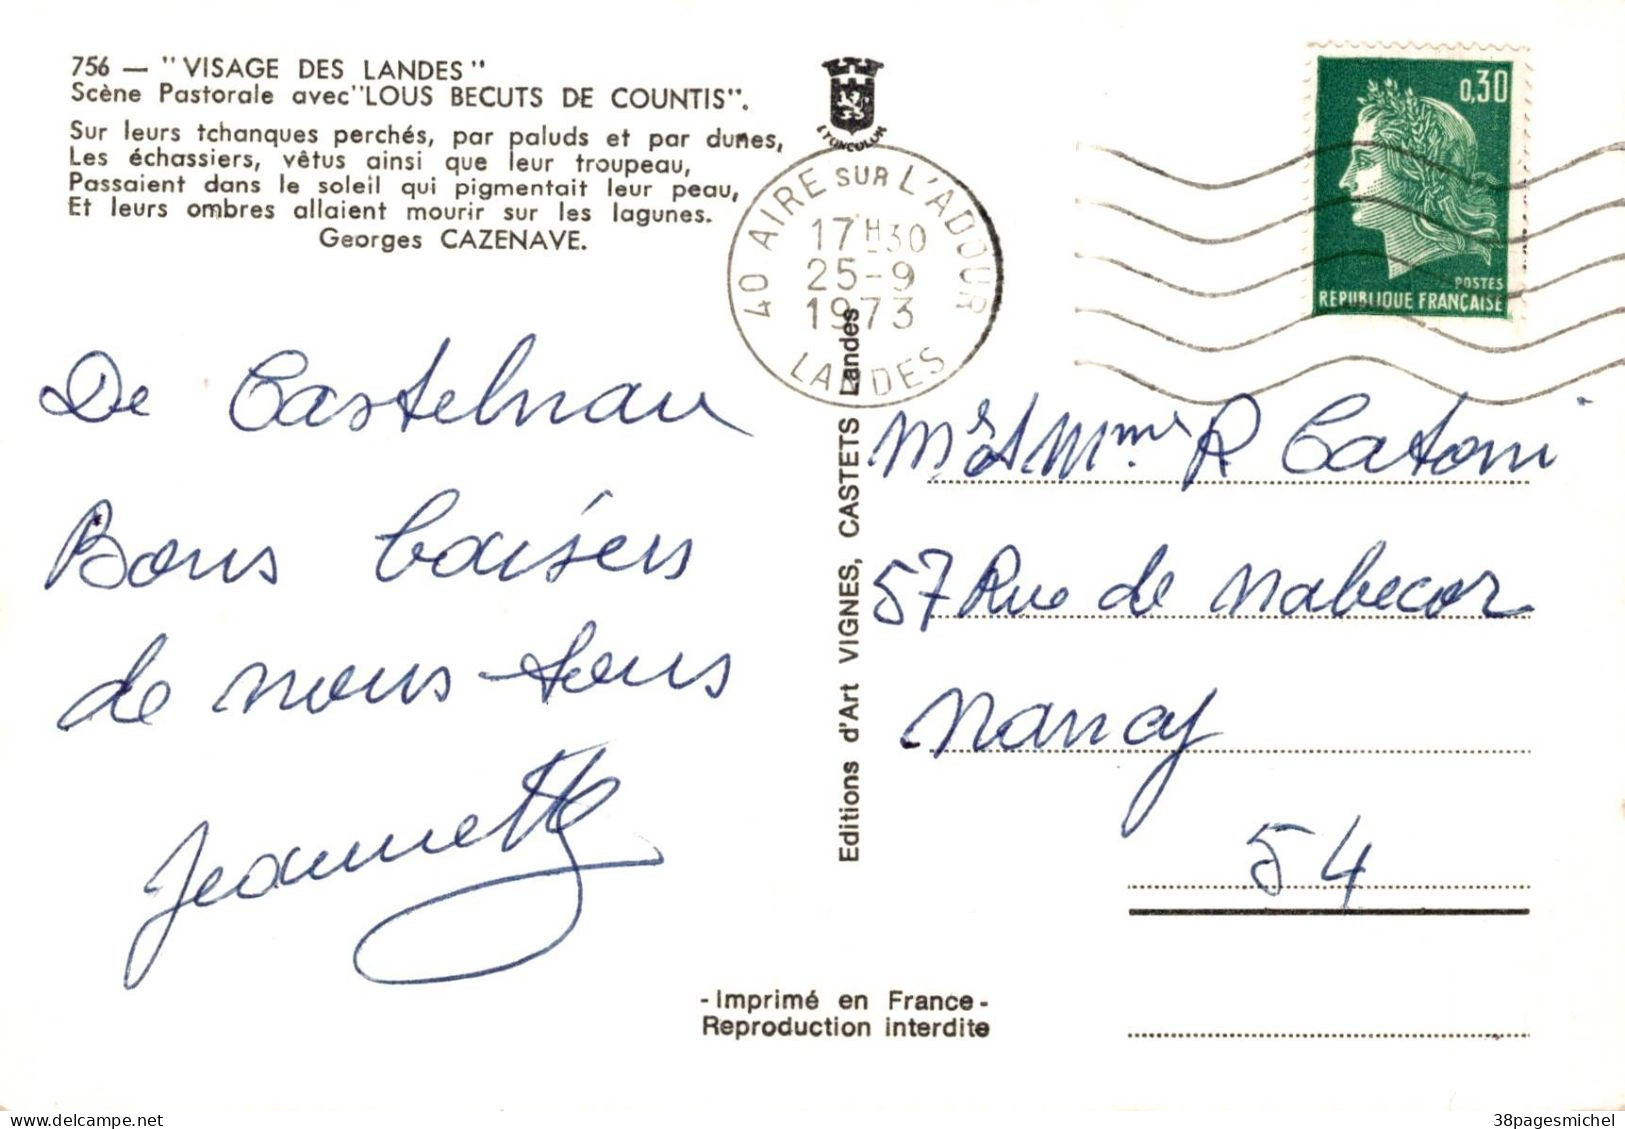 756 — "VISAGE DES LANDES"
Scène Pastorale avec "LOUS BECUTS DE COUNTIS".
Sur leurs tchanques perchés, par paluds et par dunes,
Les échassiers, vêtus ainsi que leur troupeau,
Passaient dans le soleil qui pigmentait leur peau,
Et leurs ombres allaient mourir sur les lagunes.
Georges CAZENAVE.
De Castelnau
Bons baisers
de nous tous
Jeannette
40 AIRE SUR L'ADOUR
17H30
25-9
1973
LANDES
Editions d'Art VIGNES, CASTETS Landes
0,30
POSTES
REPUBLIQUE FRANÇAISE
Mr & Mme R Catoni
57 Rue de Nabecor
Nancy
54
-Imprimé en France-
Reproduction interdite
delcampe.net
38pagesmichel